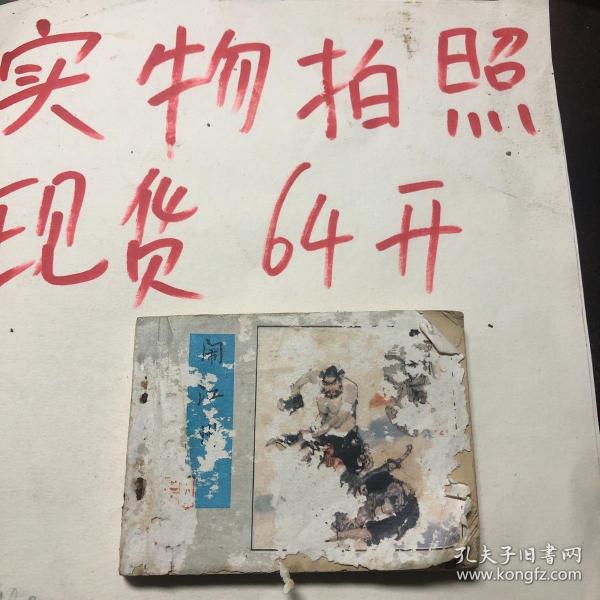 实物拍照
现货 64开
闹江州
孔夫子旧書网
www.kongfz.com